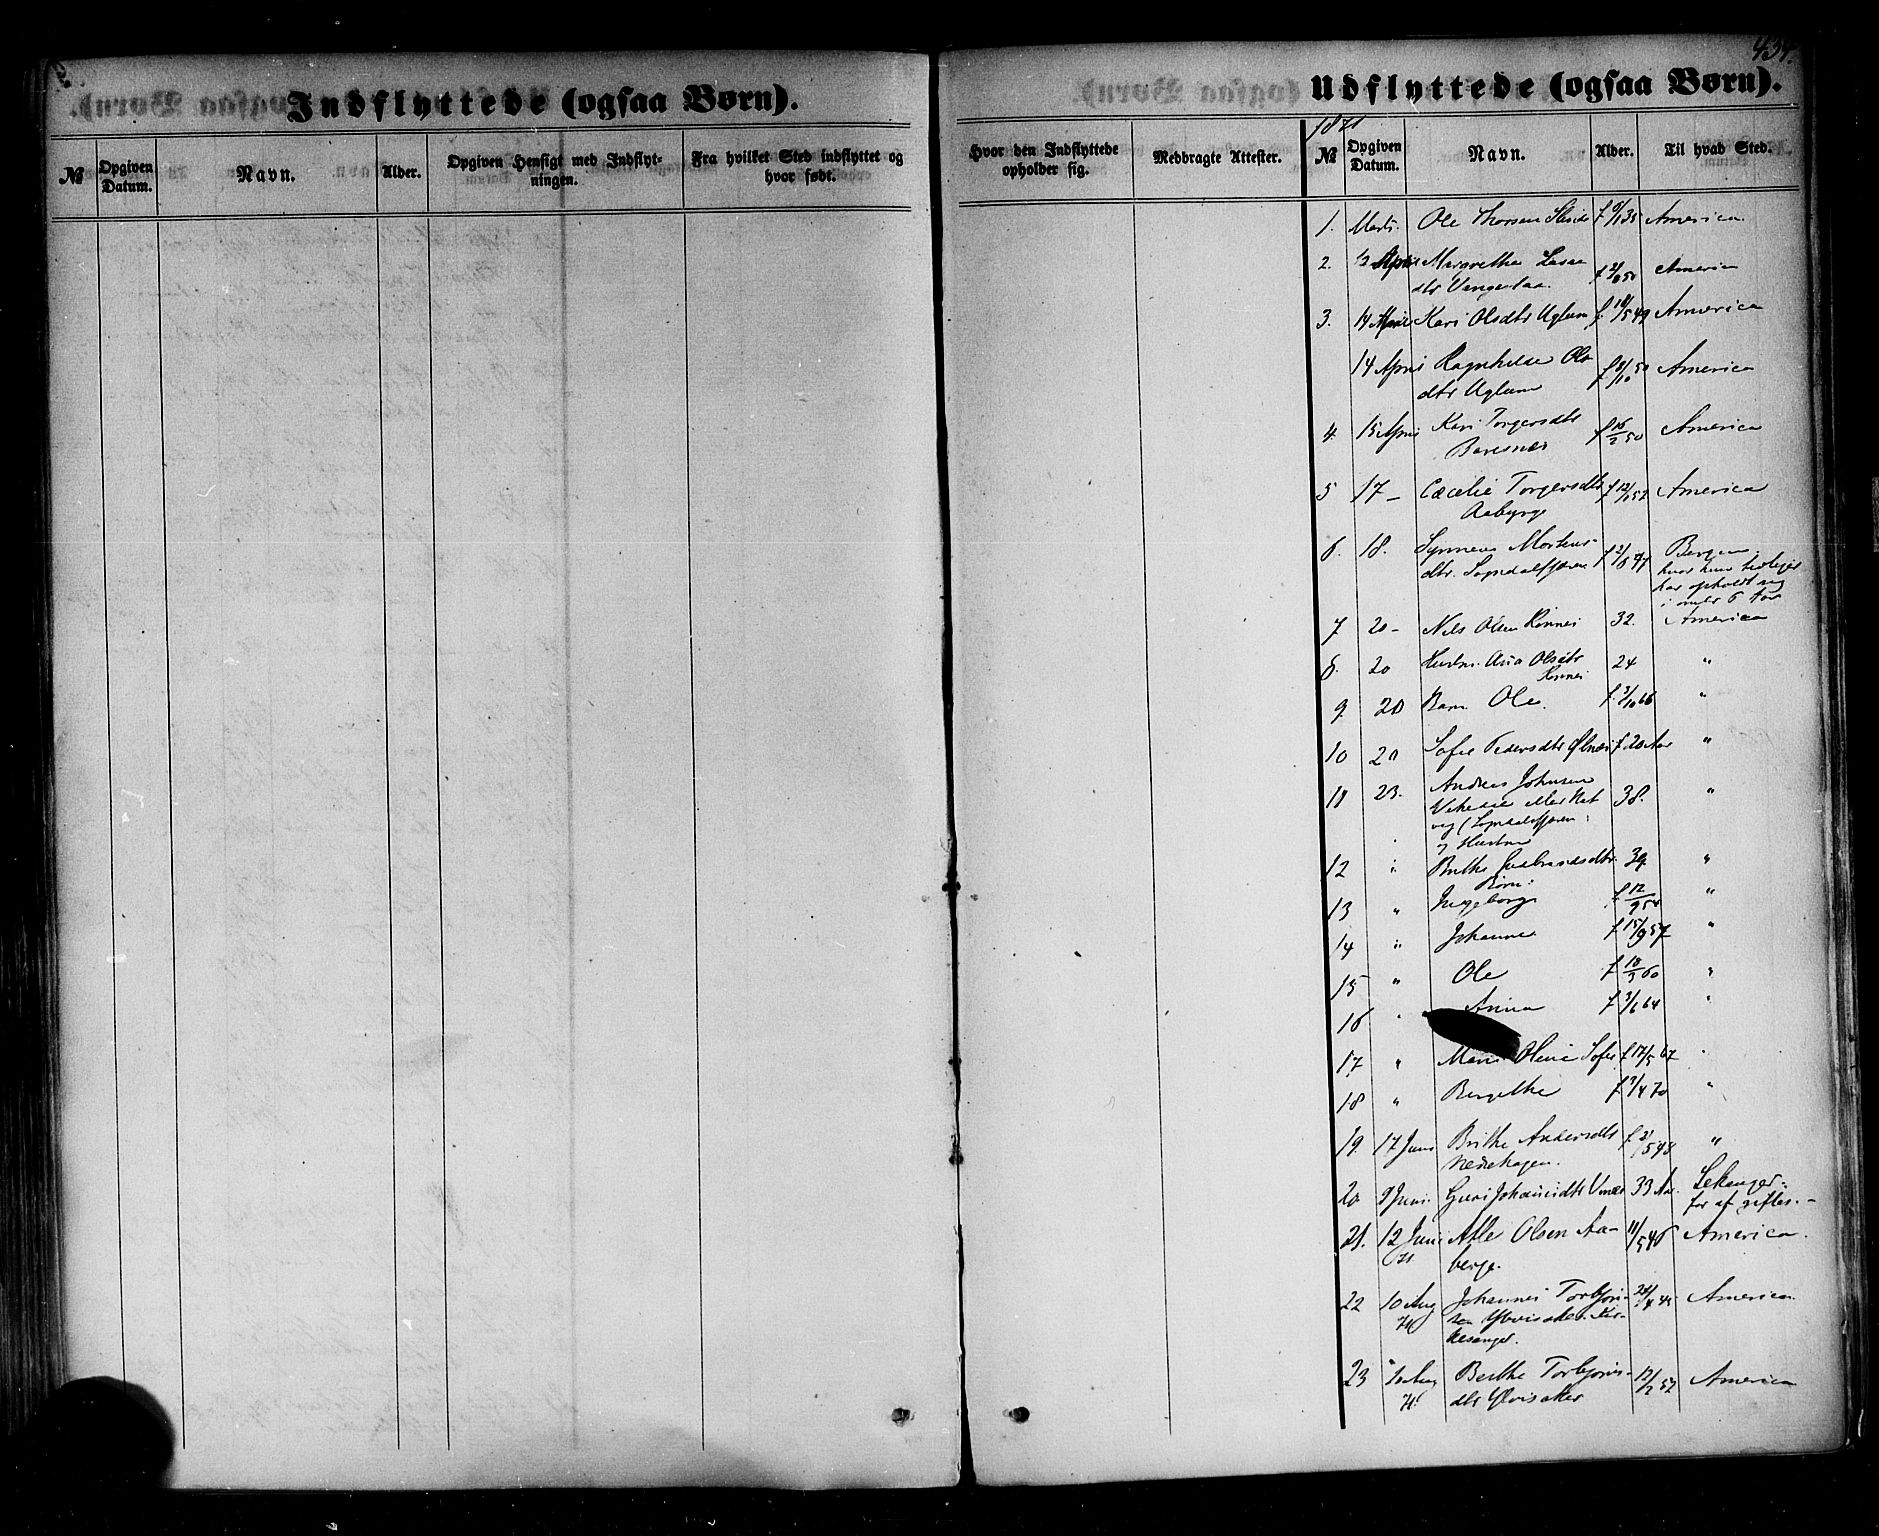 434.
Indflyttede (ogsaa Børn).
Udflyttede (ogsaa Børn).
№ Opgiven Datum. Navn. Alder. Opgiven Hensigt med Indflyt-
ningen. Fra hvilket Sted indflyttet og
hvor født.
Hvor den Indflyttede
opholder sig. Medbragte Attester.
1871
№ Opgiven Datum. Navn. Alder. Til hvad Sted.
1. Marts. Ole Thorsen f 6/1 35 America
2. 12 April Margrethe Lasse
dtr f 2/8 50 America
3. 14 April Kari Olsdtr Uglum f. 18/5 49 America
14 April Ragnhilde Ols
dtr Uglum f 8/10 50 America
4. 15 April Kari Torgersdtr
Baresnes f 16/2 50 America
5 17 - Cæcelie Torgersdtr
Aaberge f 12/1 52 America
6. 18. Mortens-
dtr. Sogndalsfjæren f 2/8 47 Bergen,
hvor hun
har opholdt sig
i over 6 Aar
7 20 - Nils Olsen Rønnei 32. America
8. 20 Hustru Olsdtr
Rønnei 24 "
9. 20 Barn Ole. f. 3/10 66 "
10 20 Sofie Pedersdtr Ølnæs f 20 Aar "
11 23. Andreas Johnsen
(Sogndalsfjæren
og Hustru 38. "
12 " Brithe Gulbrandsdtr. 39. "
Børn:
13 " Ingeborg f 12/9 54 "
14 " Johanne f 15/9 57 "
15 " Ole f 18/3 60 "
16 " Anna f 3/6 64 "
17 " Marie Oline Sofie f 17/5 67 "
18 " Bergithe f 7/4 70 "
19. 17 Juni Brithe Andersdtr
Nedrehagen. f. 2/5 48 "
20 9 Juni. Guri Johannesdtr 33 Aar. Lekanger:
for at giftes. -
21. 12 Juni
71 Atle Olsen Aa-
berge. 11/5 46 America.
22 10 Aug
71 Johannes Torbjørn-
sen Yttvisaker 24/4 45 America
23 10 Aug
71 Berthe Torbjørns-
dtr Ølvisaker 12/2 52 America